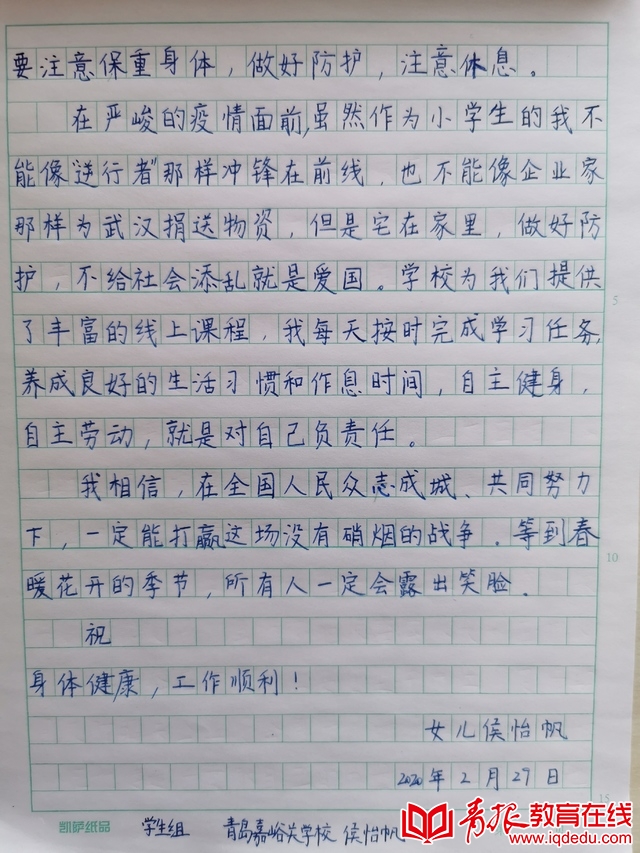 要注意保重身体，做好防护，注意休息。
在严峻的疫情面前,虽然作为小学生的我不
能像“逆行者”那样冲锋在前线，也不能像企业家
那样为武汉捐送物资，但是宅在家里，做好防
护，不给社会添乱就是爱国。学校为我们提供
了丰富的线上课程，我每天按时完成学习任务,
养成良好的生活习惯和作息时间，自主健身，
自主劳动，就是对自己负责任。
我相信，在全国人民众志成城、共同努力
下，一定能打赢这场没有硝烟的战争。等到春
暖花开的季节，所有人一定会露出笑脸。
祝
身体健康，工作顺利！
女儿侯怡帆
2020年2月29日
5
10
15
凯萨纸品
学生组 青岛嘉峪关学校 侯怡帆
青报教育在线
www.qdedu.com